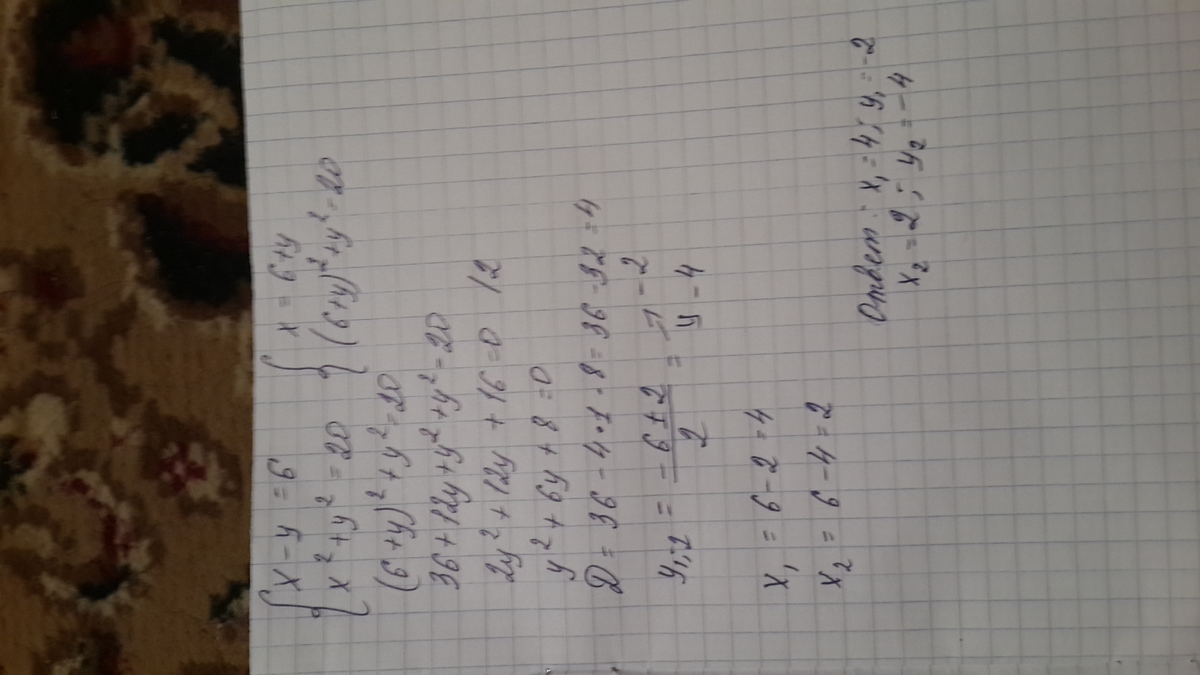 { x - y = 6 { x = 6+y
{ x² + y² = 20 { (6+y)² + y² = 20
(6+y)² + y² = 20
36 + 12y + y² + y² = 20
2y² + 12y + 16 = 0 12
y² + 6y + 8 = 0
D = 36 - 4·1·8 = 36 - 32 = 4
y₁;₂ = (-6 ± 2)/2 = -2
-4
x₁ = 6 - 2 = 4
x₂ = 6 - 4 = 2
Ответ: x₁ = 4; y₁ = -2
x₂ = 2; y₂ = -4